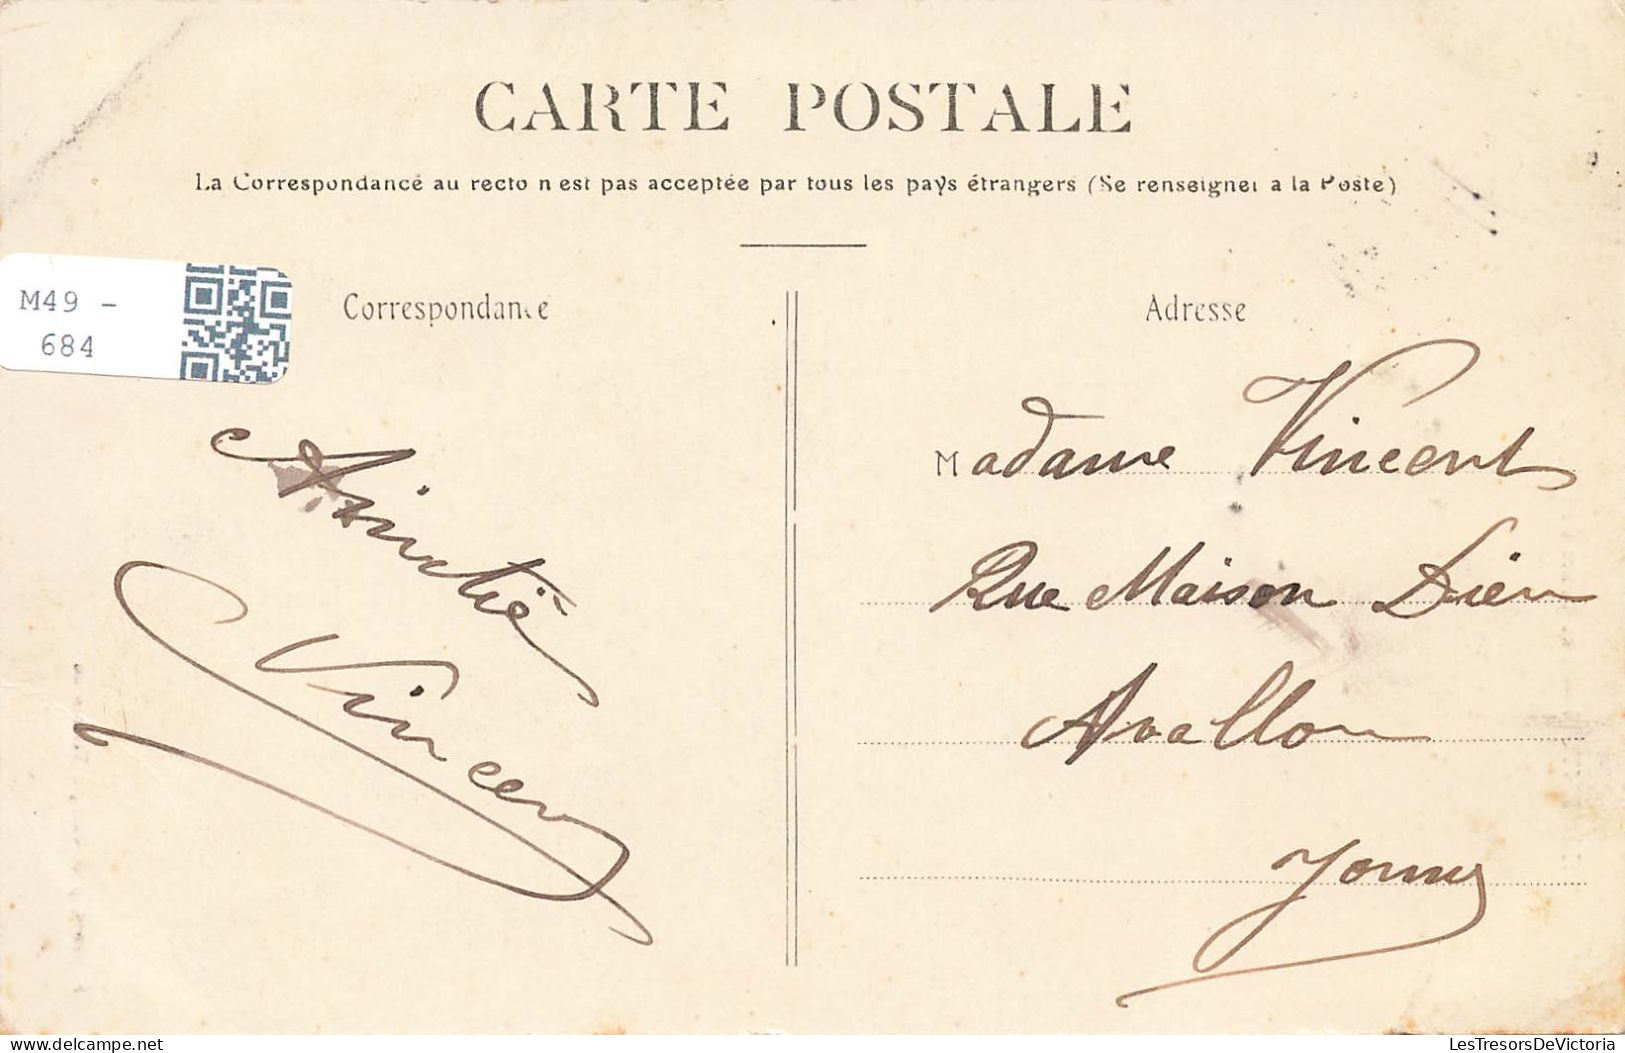 CARTE POSTALE
La Correspondance au recto n'est pas acceptée par tous les pays étrangers (Se renseigner a la Poste)
M49 -
684
Correspondance
Amitié
Vincent
Adresse
Madame Vincent
Rue Maison Dieu
Avallon
Yonne
delcampe.net
LesTresorsDeVictoria